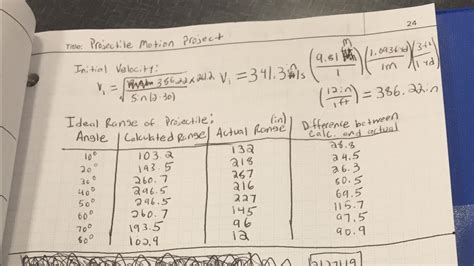 24
Title: Projectile Motion Project
Initial Velocity:
V₁ = √(386.22 × 261.2 / Sin(2·30)) V₁ = 341.3 in/s (9.81 m / 1) (1.0936 yd / 1m) (3 ft / 1 yd)
(12 in / 1 ft) = 386.22 in
Ideal Range of Projectile: (in) Difference between
Angle Calculated Range Actual Range Calc. and actual
10° 103.2 132 28.8
20° 193.5 218 24.5
30° 260.7 287 26.3
40° 296.5 216 80.5
50° 296.5 227 69.5
60° 260.7 145 115.7
70° 193.5 96 97.5
80° 102.9 12 90.9